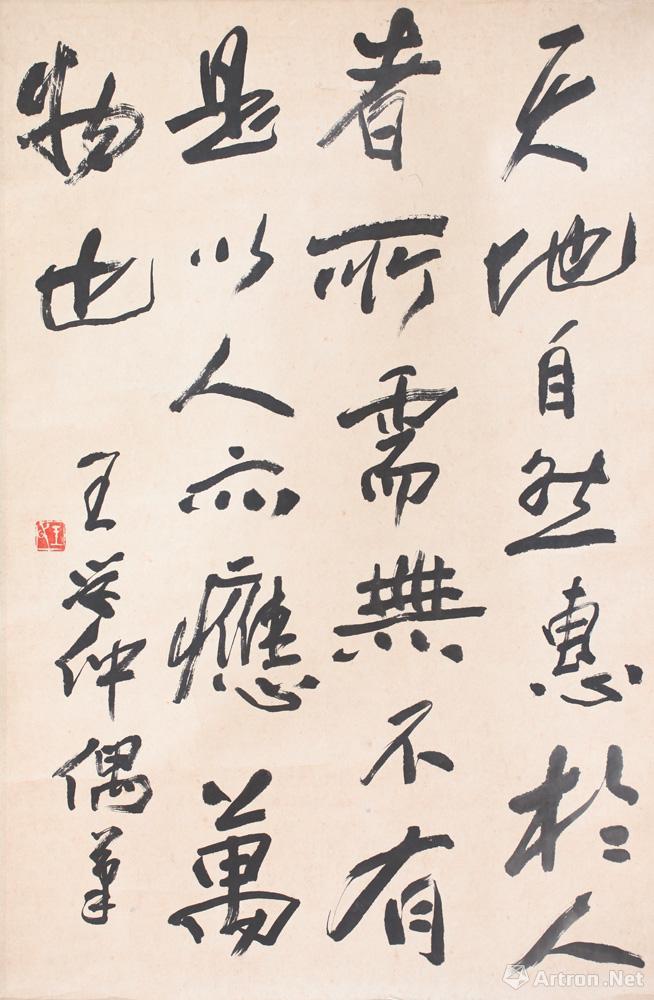 天地自然惠於人
者所需無不有
是以人亦應萬
物也
王學仲偶筆
Artron.Net